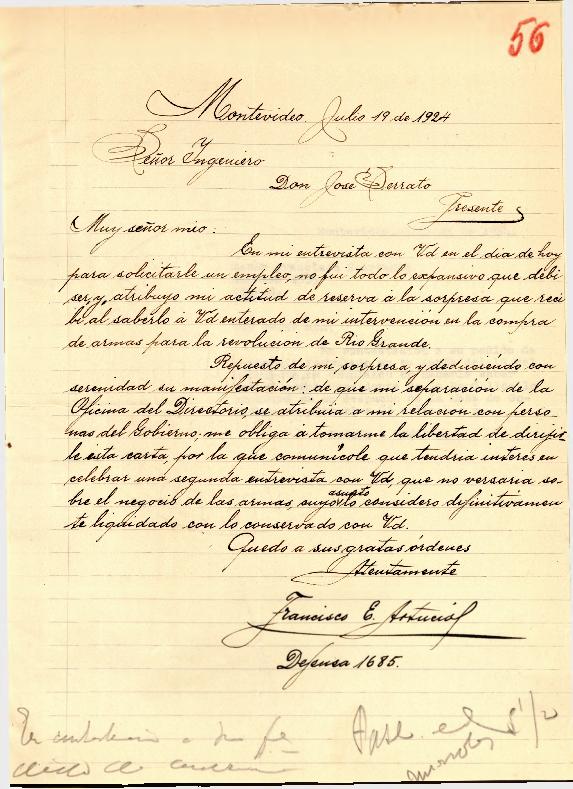 56
Montevideo, Julio 19 de 1924
Señor Ingeniero
Don José Serrato
Presente
Muy señor mio:
En mi entrevista con Vd en el dia de hoy
para solicitarle un empleo, no fui todo lo expansivo que debi
ser, y, atribuyo mi actitud de reserva a la sorpresa que reci
bi al saberlo à Vd enterado de mi intervención en la compra
de armas para la revolucion de Rio Grande.
Repuesto de mi sorpresa, y deduciendo con
serenidad su manifestación: de que mi separación de la
Oficina del Directorio, se atribuia a mi relacion con perso
nas del Gobierno, me obliga à tomarme la libertad de dirigir
le esta carta por la que comunícole que tendria interés en
celebrar una segunda entrevista con Vd, que no versaria so-
bre el negocio de las armas, cuyo asunto lo considero definitivamen
te liquidado con lo conservado con Vd.
Quedo a sus gratas órdenes
Atentamente
Francisco E. Artucio
Defensa 1685.
Pase el 5 1/2
miercoles